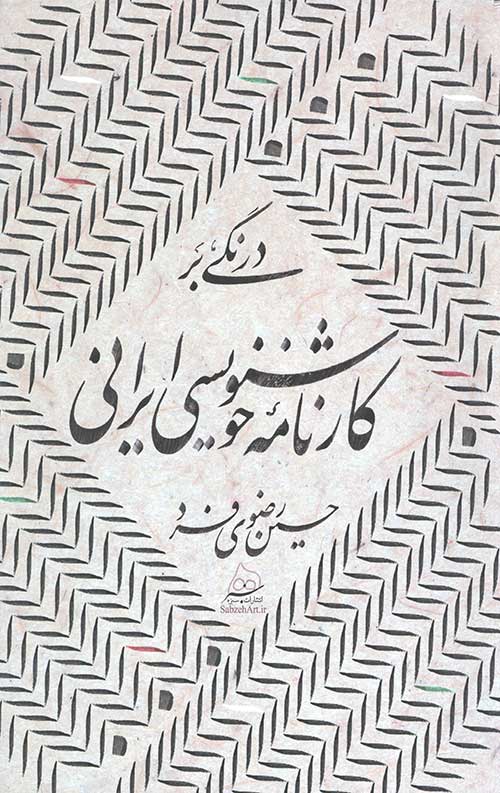 درنگی بر
کارنامهٔ خوشنویسی ایرانی
حسین رضوی فرد
انتشارات سبزه
SabzehArt.ir